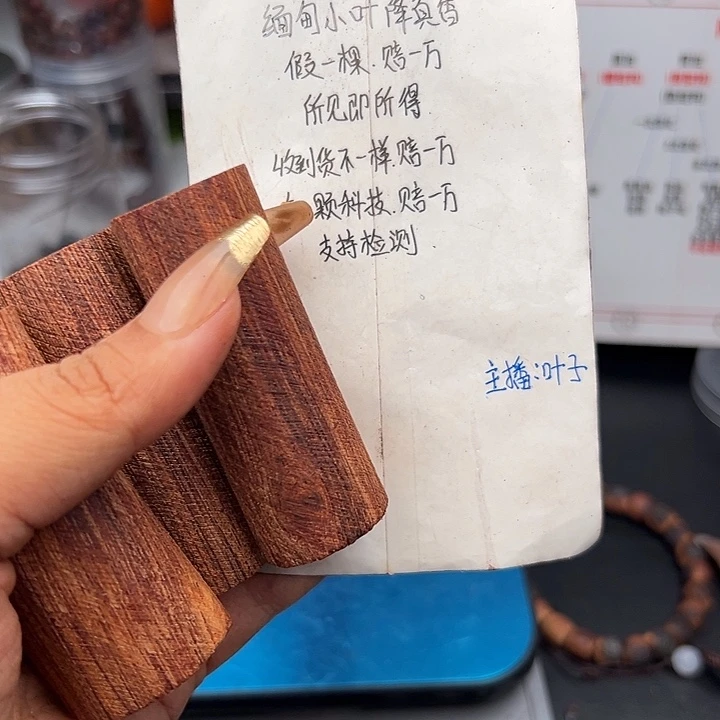 缅甸小叶降真香
假一棵.赔一万
所见即所得
收到货不一样.赔一万
颗科技.赔一万
支持检测.
主播:叶子